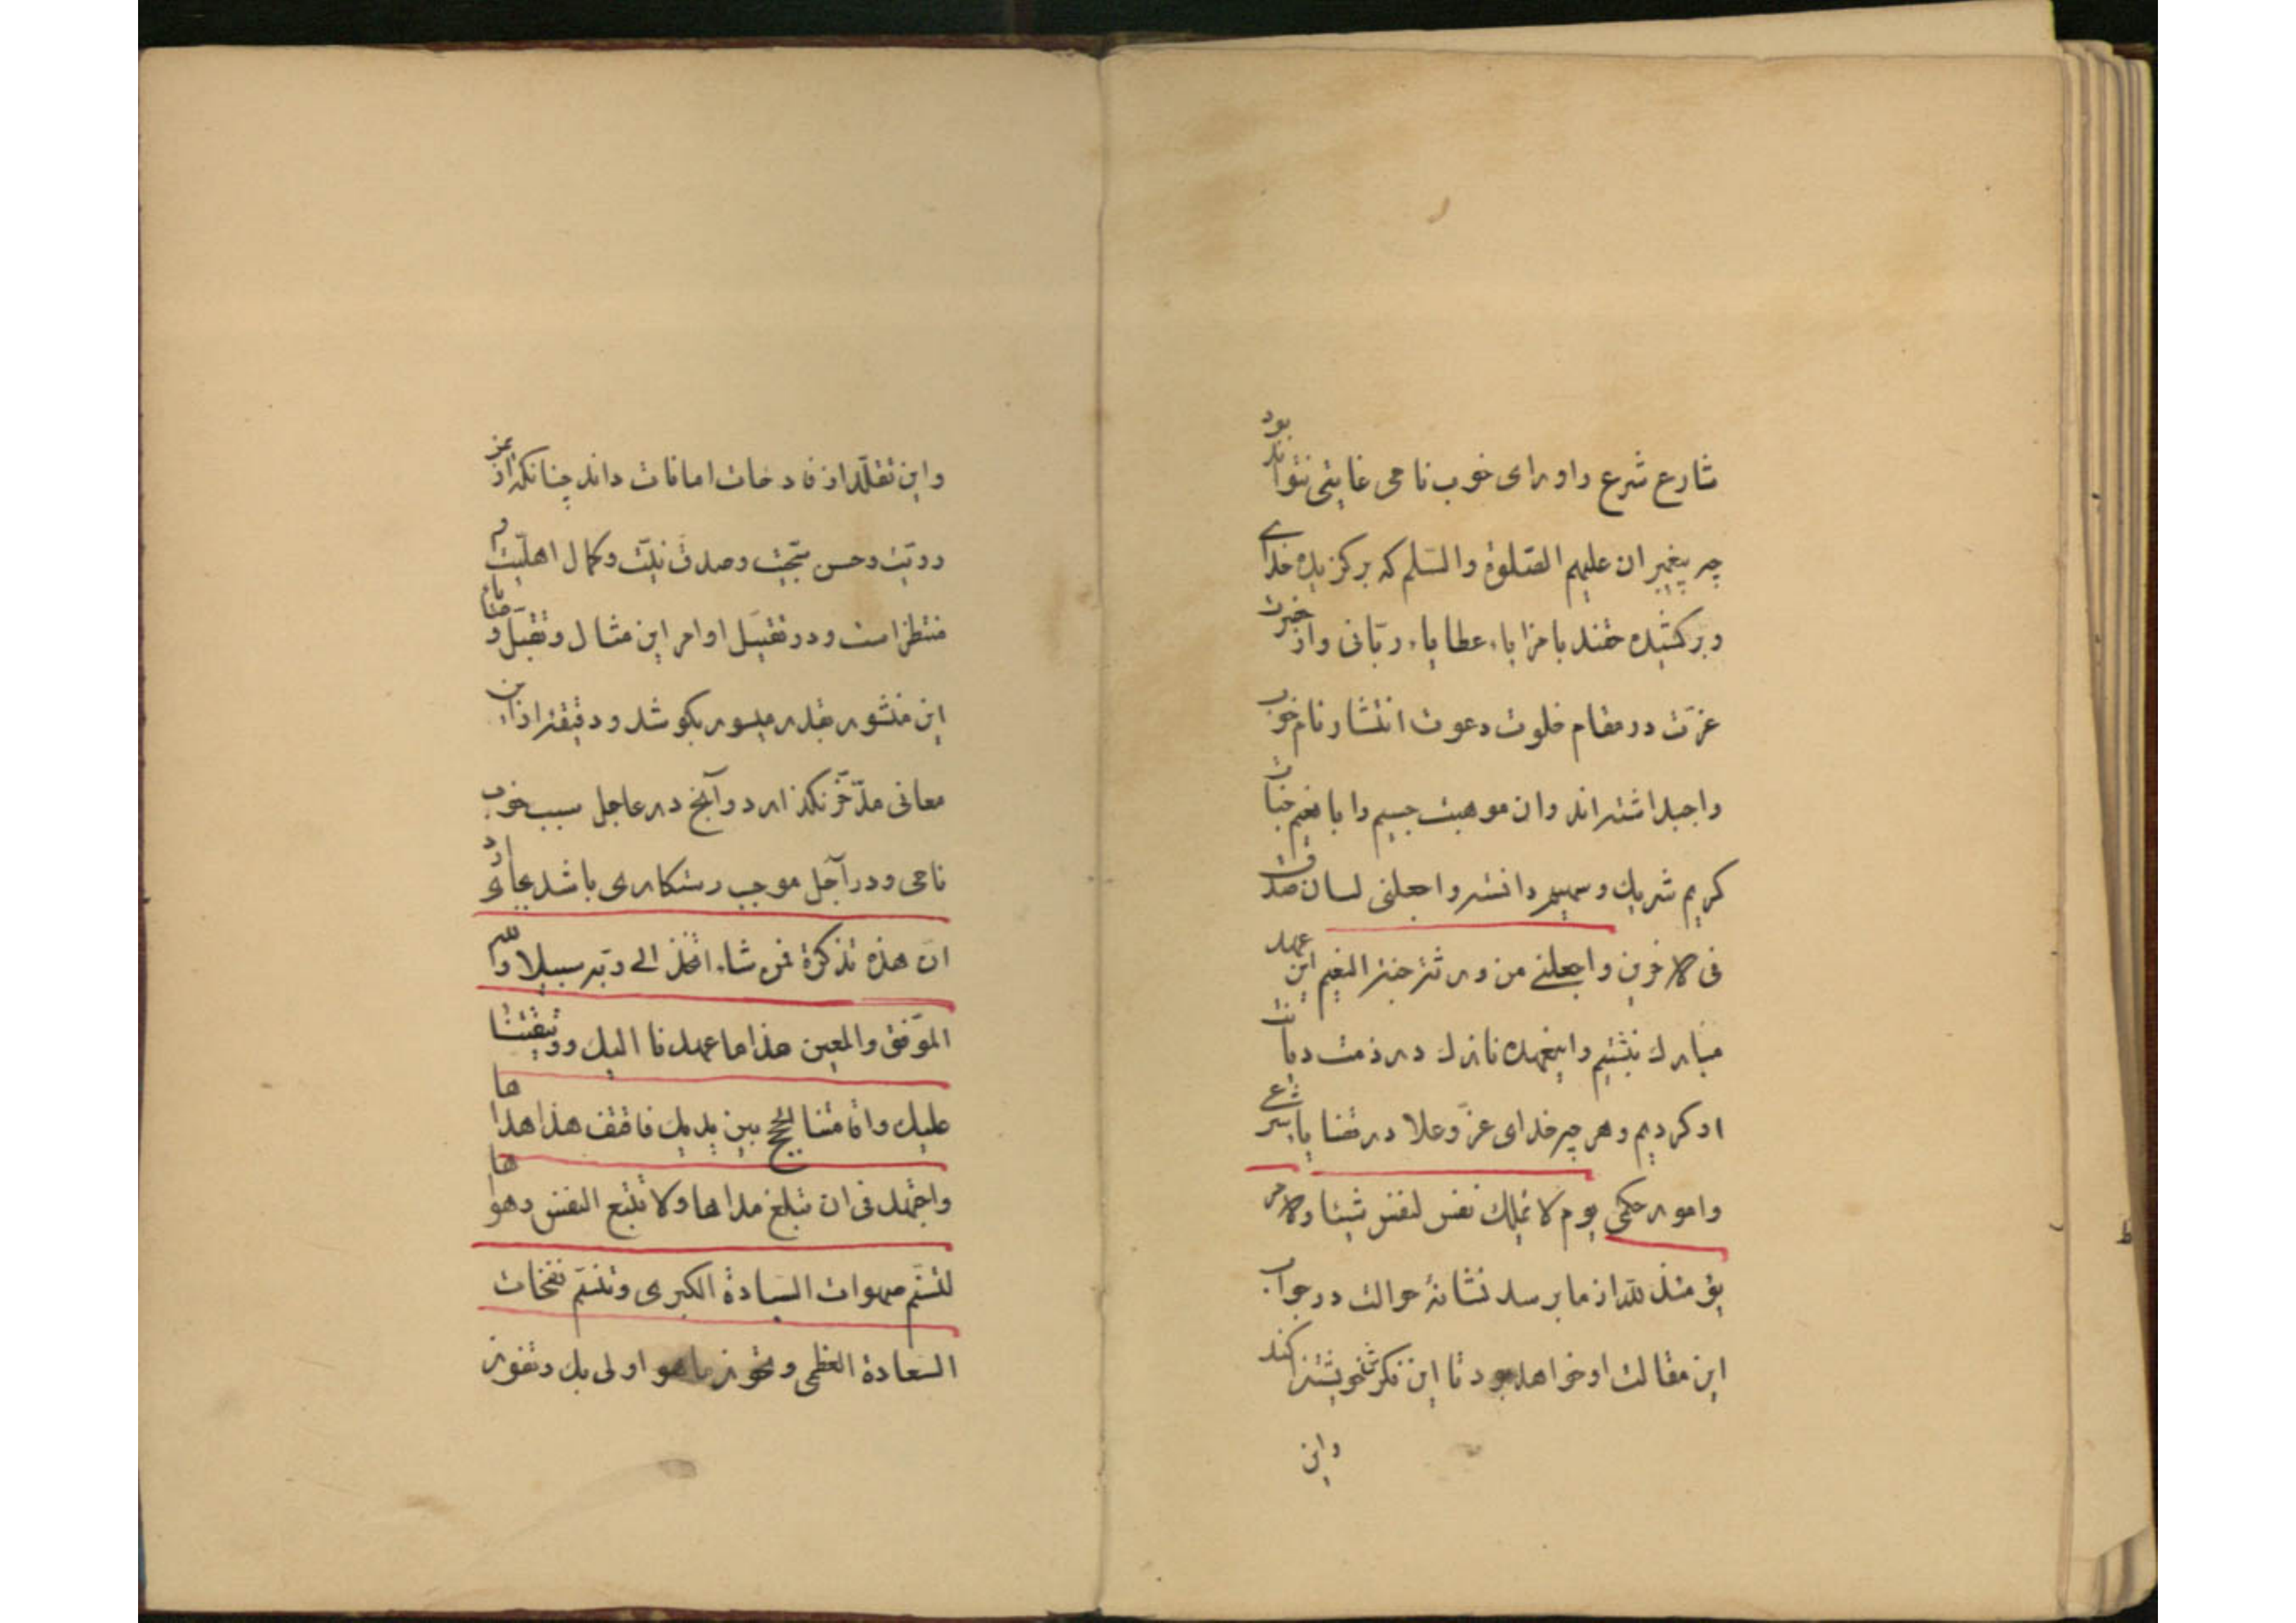 شارع شرع و او رای خوب نامی غایتی نتواند بود
چه پیغمبران علیهم الصّلوة والسّلم که برگزیده خدای
و برکشیده حقند با مزایاء عطایاء ربّانی و از حضرت
عزّت در مقام خلوت دعوت انتشار نام خوب
واجب داشته‌اند و ان موهبت جسیم را با نعیم جنات
کریم شریک و سهیم دانسته واجعلنی لسان صدق
فی الاخرین واجعلنی من ورثة جنة النعیم این عهد
مبارک نبشتیم و اینعهده نازک در ذمت دیانت
او کردیم و هر چه خدای عزّ و علا در قضایا شرع
و امور حکمی یوم لا تملک نفس لنفس شیئا والامر
یومئذ لله از ما برسد نشانهٔ حوالت در جواب
این مقالت او خواهد بود تا این فکر خویشتن را کند
واین
واین تقلّد از فادحات امانات داند چنانکه از
رویّت و حسن سجیّت و صدق نیّت و کمال اهلیّت
منتظر است و در تقبیل اوامر این مثال و تقبل و
این منشور بقدر میسور بکوشد و دقیقه از این
معانی مدّخر نگذارد و آنچ در عاجل سبب خوب
نامی و در آجل موجب رستکاری باشد بجای آرد
انّ هذه تذکرة فمن شاء اتخذ الی ربّه سبیلا والله
الموّفق والمعین هذا ما عهدنا الیک ووثیقتنا
علیک واقامتنا الحجج بین یدیک فاقتف هذا هداها
واجتهد فی ان تبلغ مداها ولا تتبع النفس وهواها
لتسنّم صهوات السیادة الکبری وتنسّم نفحات
السعادة العظمی وتحوز ما هو اولی بک وتفوز